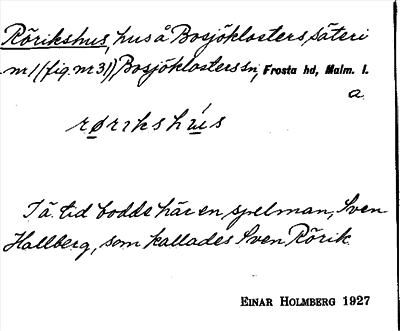 Rörikshus, hus å Bosjöklosters säteri
nr 1 (fig. nr 31), Bosjöklosters sn, Frosta hd, Malm. l.
a.
rørikshús
I ä. tid bodde här en spelman, Sven
Hallberg, som kallades Sven Rörik.
EINAR HOLMBERG 1927